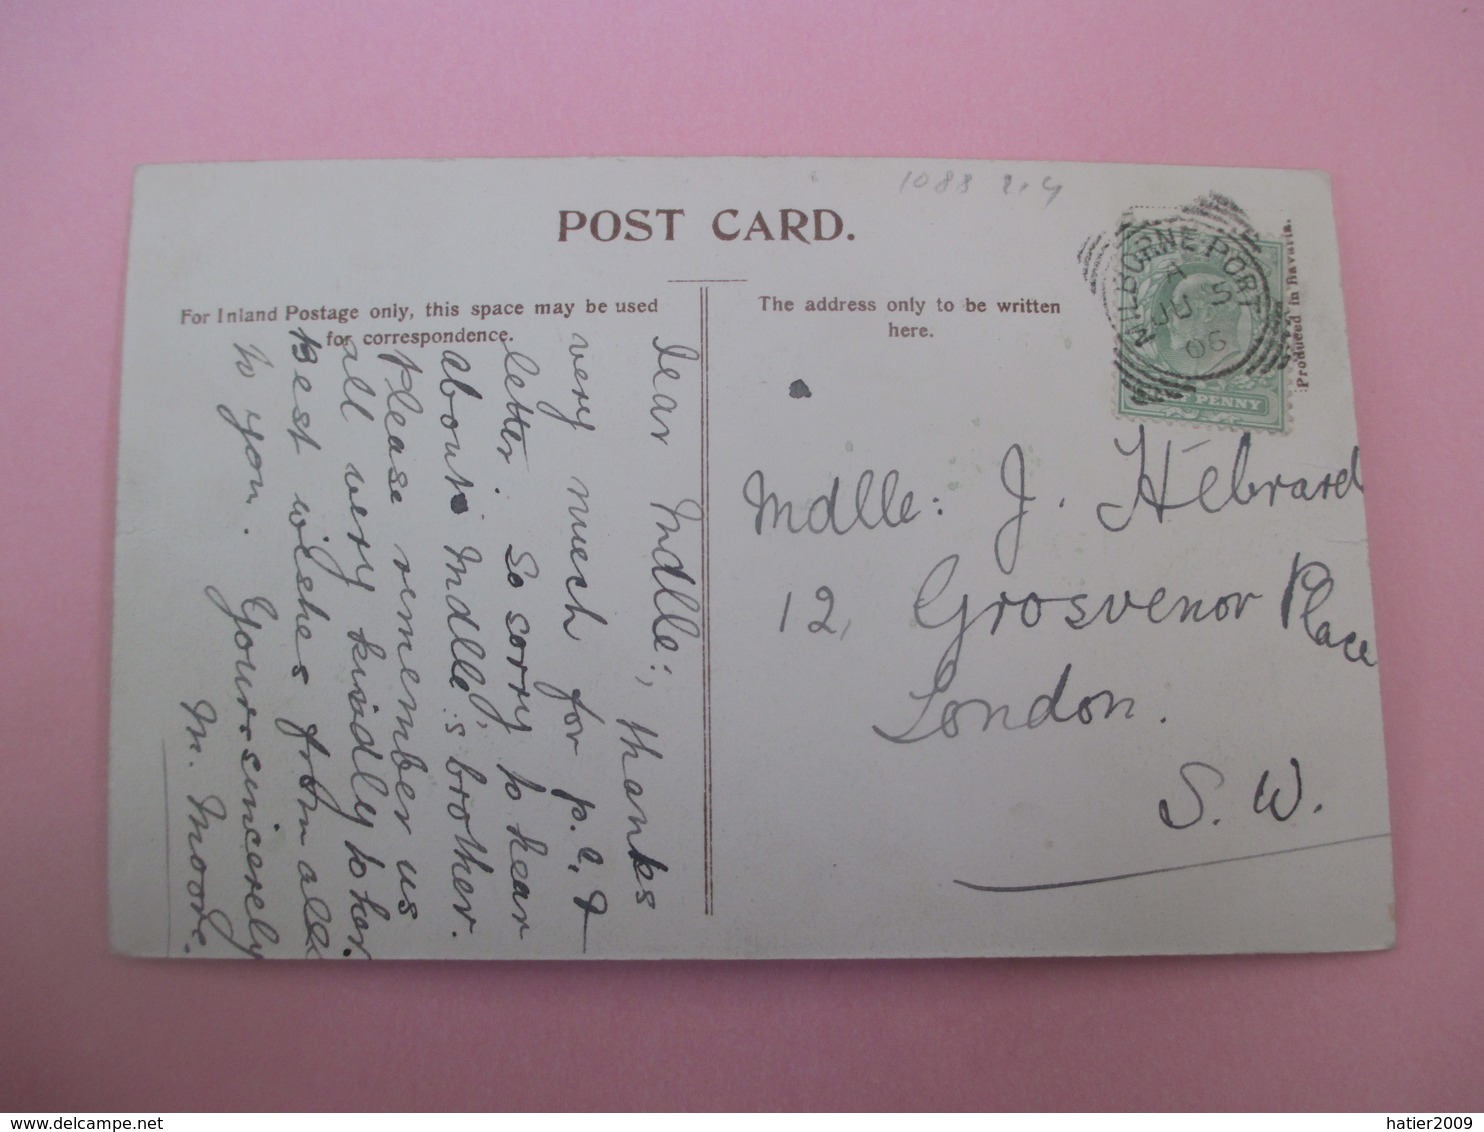 1088 2.4
POST CARD.
For Inland Postage only, this space may be used
for correspondence.
The address only to be written
here.
MILBORNE·PORT
A
JU 5
06
PENNY
Produced in Bavaria.
Dear Mdlle:, thanks
very much for p.c. &
letter. So sorry to hear
about Mdlle:'s brother.
Please remember us
all very kindly to her.
Best wishes from all
to you. Yours sincerely
M. Moore.
Mdlle: J. Hébrard
12, Grosvenor Place
London.
S. W.
hatier2009